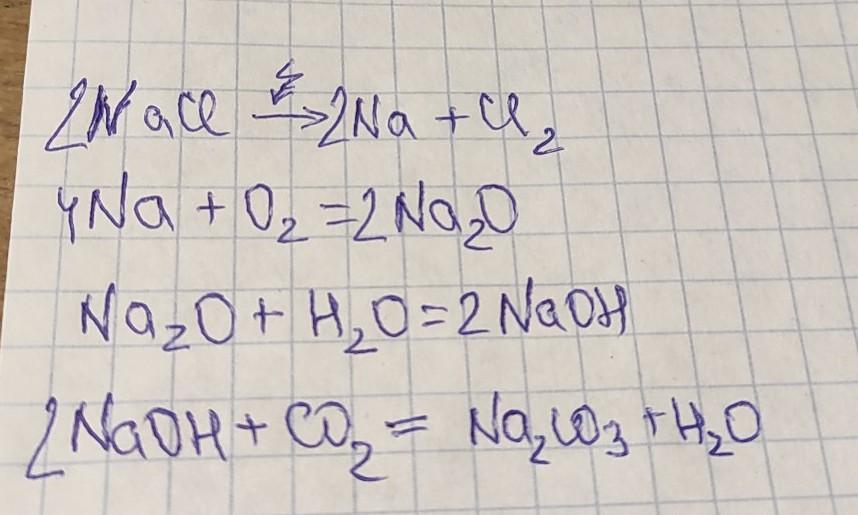 2NaCl → 2Na + Cl₂
4Na + O₂ = 2Na₂O
Na₂O + H₂O = 2NaOH
2NaOH + CO₂ = Na₂CO₃ + H₂O